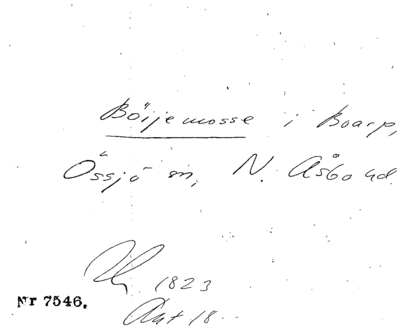 Böijemosse i Boarp,
Össjö sn, N. Åsbo hd.
1823
Akt 18
Nr 7546.